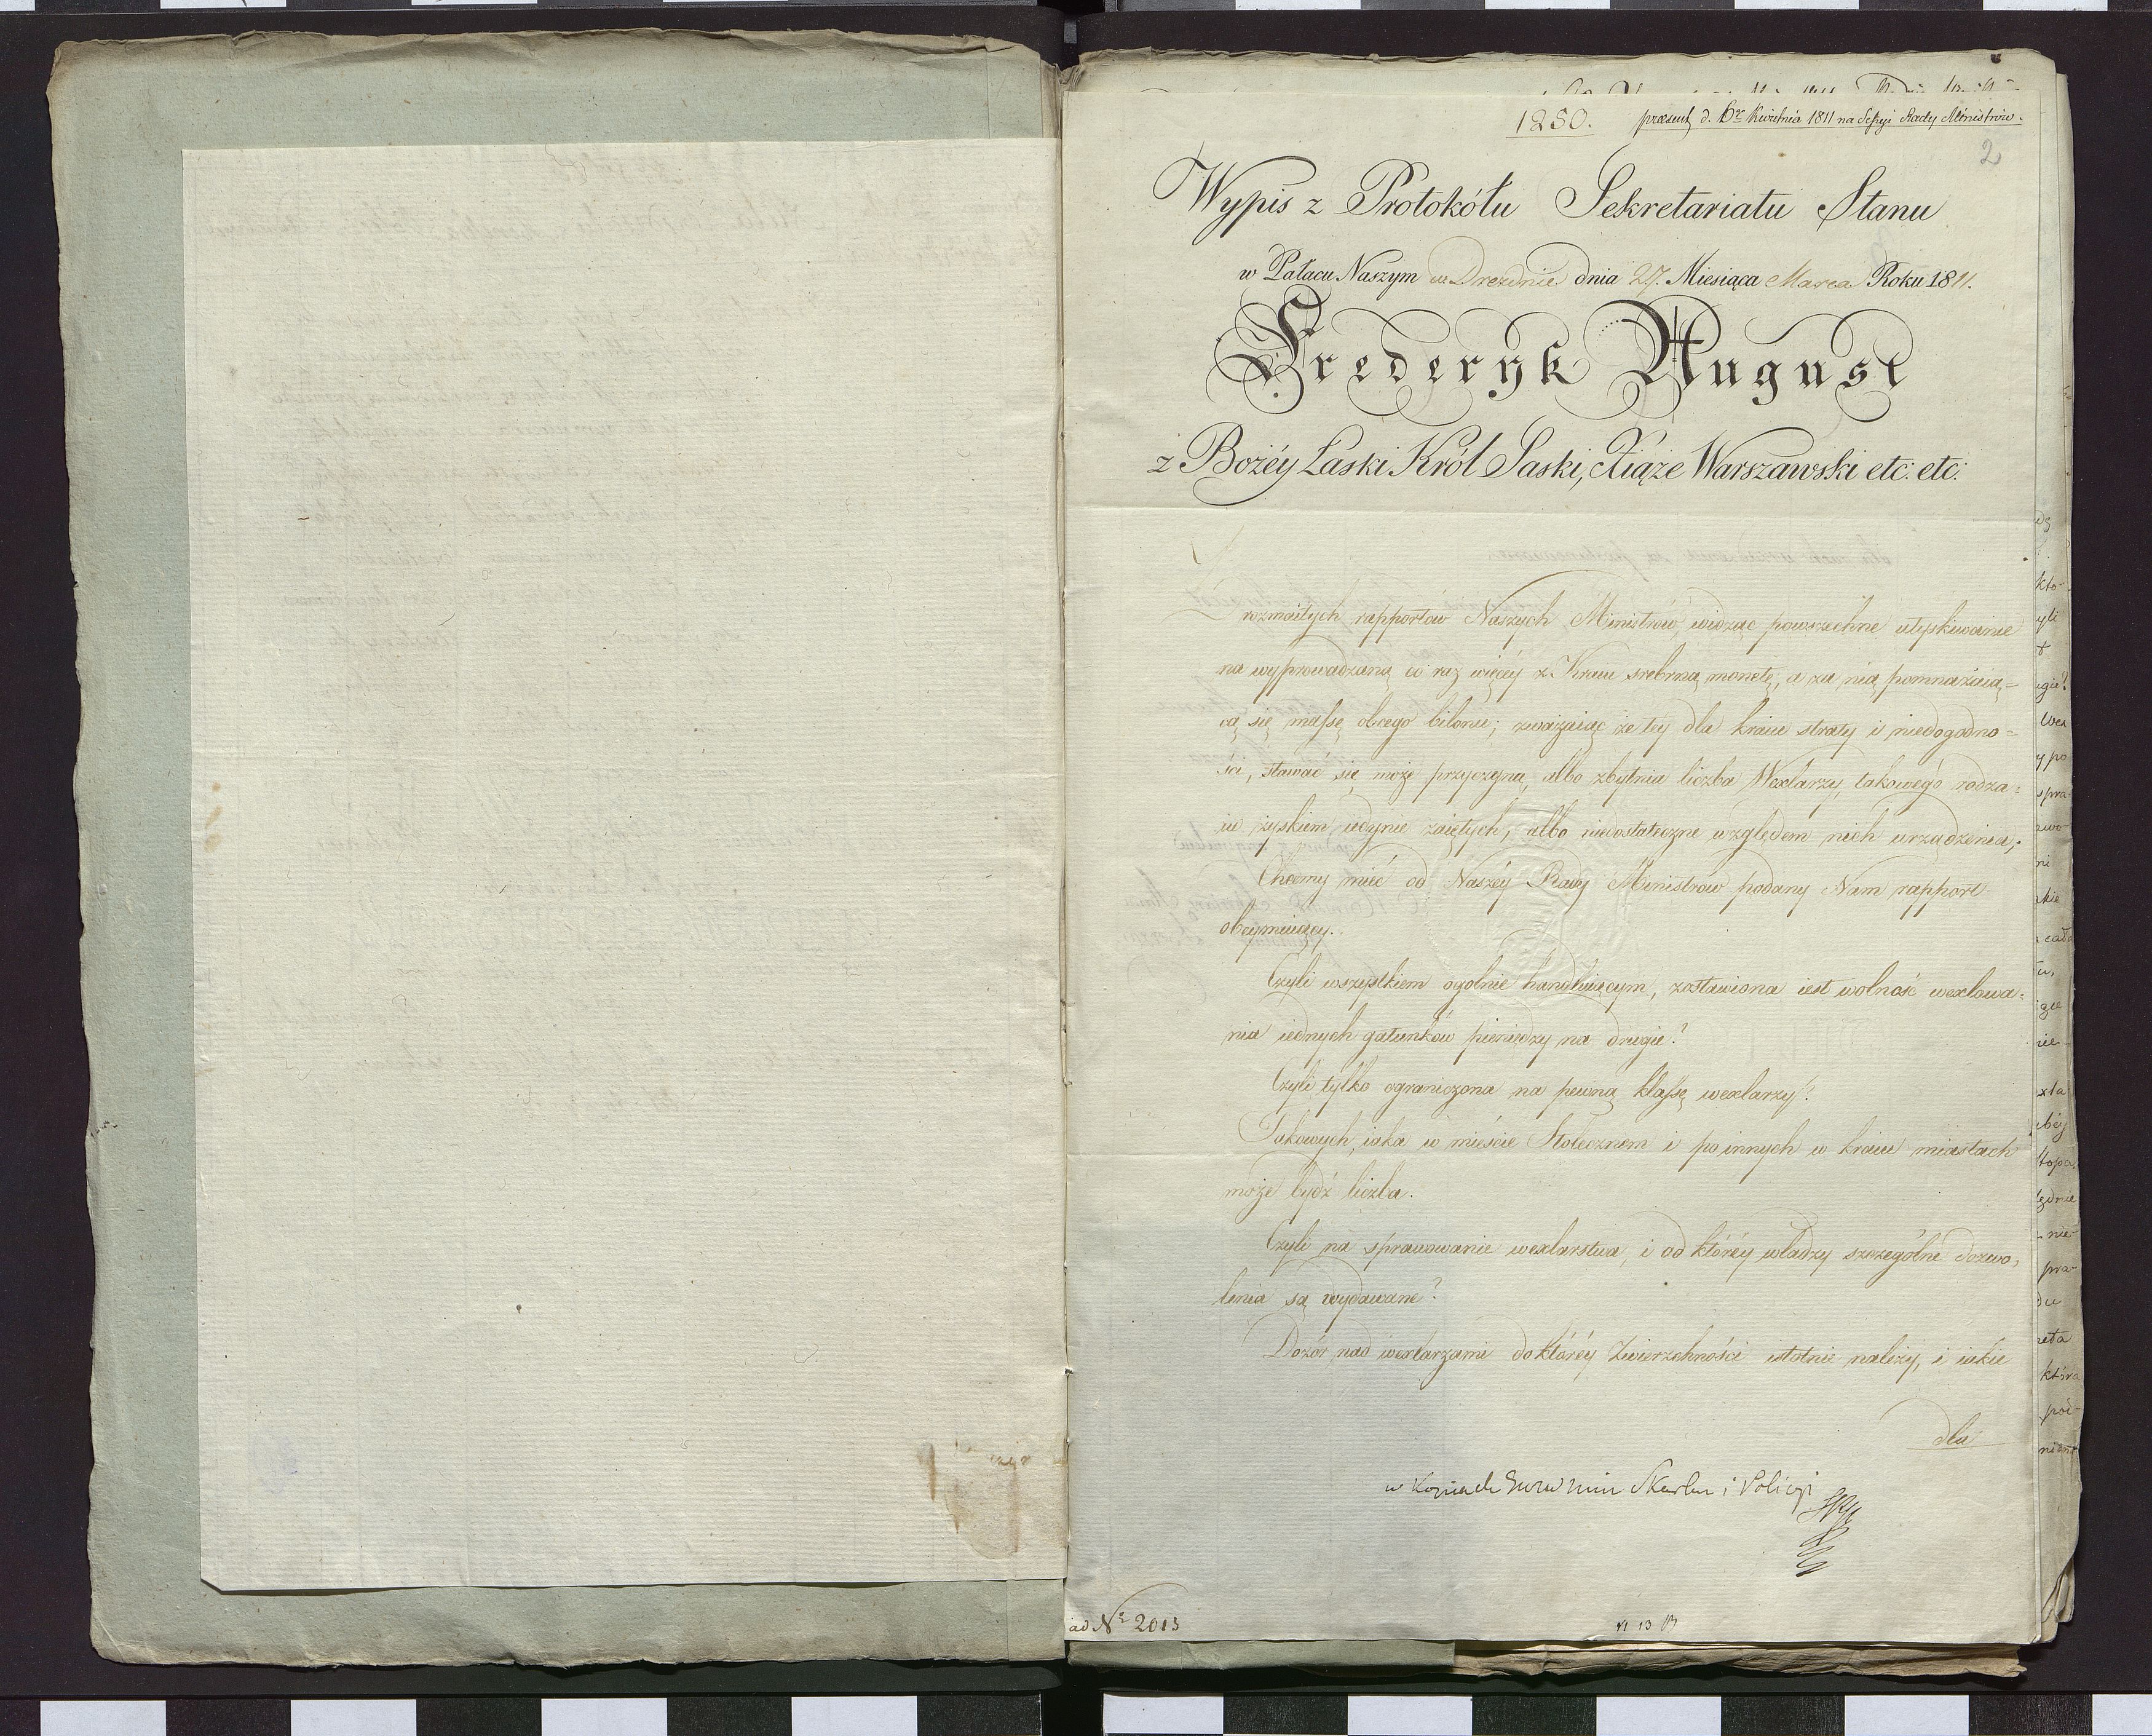 1250. præsent d. 6go Kwietnia 1811 na Sessyi Rady Ministrów.
2
Wypis z Protokółu Sekretariatu Stanu
w Pałacu Naszym w Dreznie dnia 27. Miesiąca Marca Roku 1811.
Fryderyk August
z Bożéy Łaski Król Saski, Xiąże Warszawski etc: etc:
Z rozmaitych rapportów Naszych Ministrów, widząc powszechne utyskiwanie
na wyprowadzaną co raz więcéy z Kraiu srebrną monetę, a za nią pomnażaią-
cą się massę obcego bilonu; zważaiąc że tey dla kraiu straty i niedogodno=
ści, stawać się może przyczyną, albo zbytnia liczba Wexlarzy, takowego rodza=
iu zyskiem iedynie zaiętych, albo niedostateczne względem nich urządzenia;
Chcemy mieć od Naszéy Rady Ministrów podany Nam rapport
obeymuiący.
Czyli wszystkiem ogolnie handluiącym, zostawiona iest wolność wexlowa=
nia iednych gatunków pieniędzy na drugie?
Czyli tylko ograniczona na pewną klassę wexlarzy?
Takowych, iaka w mieście Stołecznem i po innych w kraiu miastach
może bydź liczba.
Czyli na sprawowanie wexlarstwa, i od któréy władzy szczególne dozwo=
lenia są wydawane?
Dozór nad wexlarzami do któréy Zwierzchności istotnie należy, i iakie
dla
w Kopiach Min Skarbu i Policyi
ad No 2013